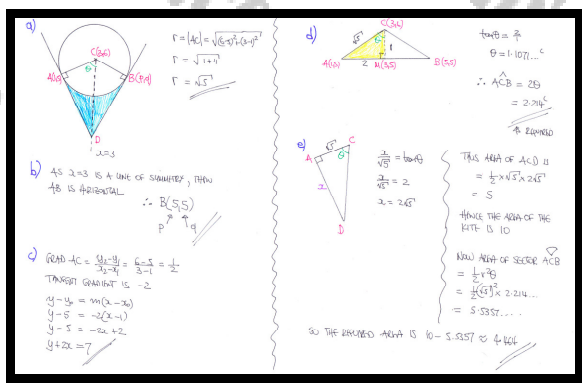 a)
C(3,6)
θ
A(1,5)
B(p,q)
D
x=3
r = |AC| = √(6-5)²+(3-1)²
r = √1+4
r = √5
b) AS x=3 IS A LINE OF SYMMETRY, THEN
AB IS HORIZONTAL
∴ B(5,5)
p q
c) GRAD AC = y₂-y₁/x₂-x₁ = 6-5/3-1 = 1/2
TANGENT GRADIENT IS -2
y-y₀ = m(x-x₀)
y-5 = -2(x-1)
y-5 = -2x+2
y+2x=7
d)
C(3,6)
√5
θ
1
A(1,5)
2
M(3,5)
B(5,5)
tanθ = 2/1
θ=1.1071...ᶜ
∴ AĈB = 2θ
= 2.214ᶜ
AS REQUIRED
e)
C
√5
A
θ
x
D
x/√5 = tanθ
x/√5 = 2
x = 2√5
THUS AREA OF ACD IS
= 1/2 × √5 × 2√5
= 5
HENCE THE AREA OF THE
KITE IS 10
NOW AREA OF SECTOR ACB
= 1/2 r²θ
= 1/2(√5)² × 2.214...
= 5.5357...
SO THE REQUIRED AREA IS 10 - 5.5357 ≈ 4.464